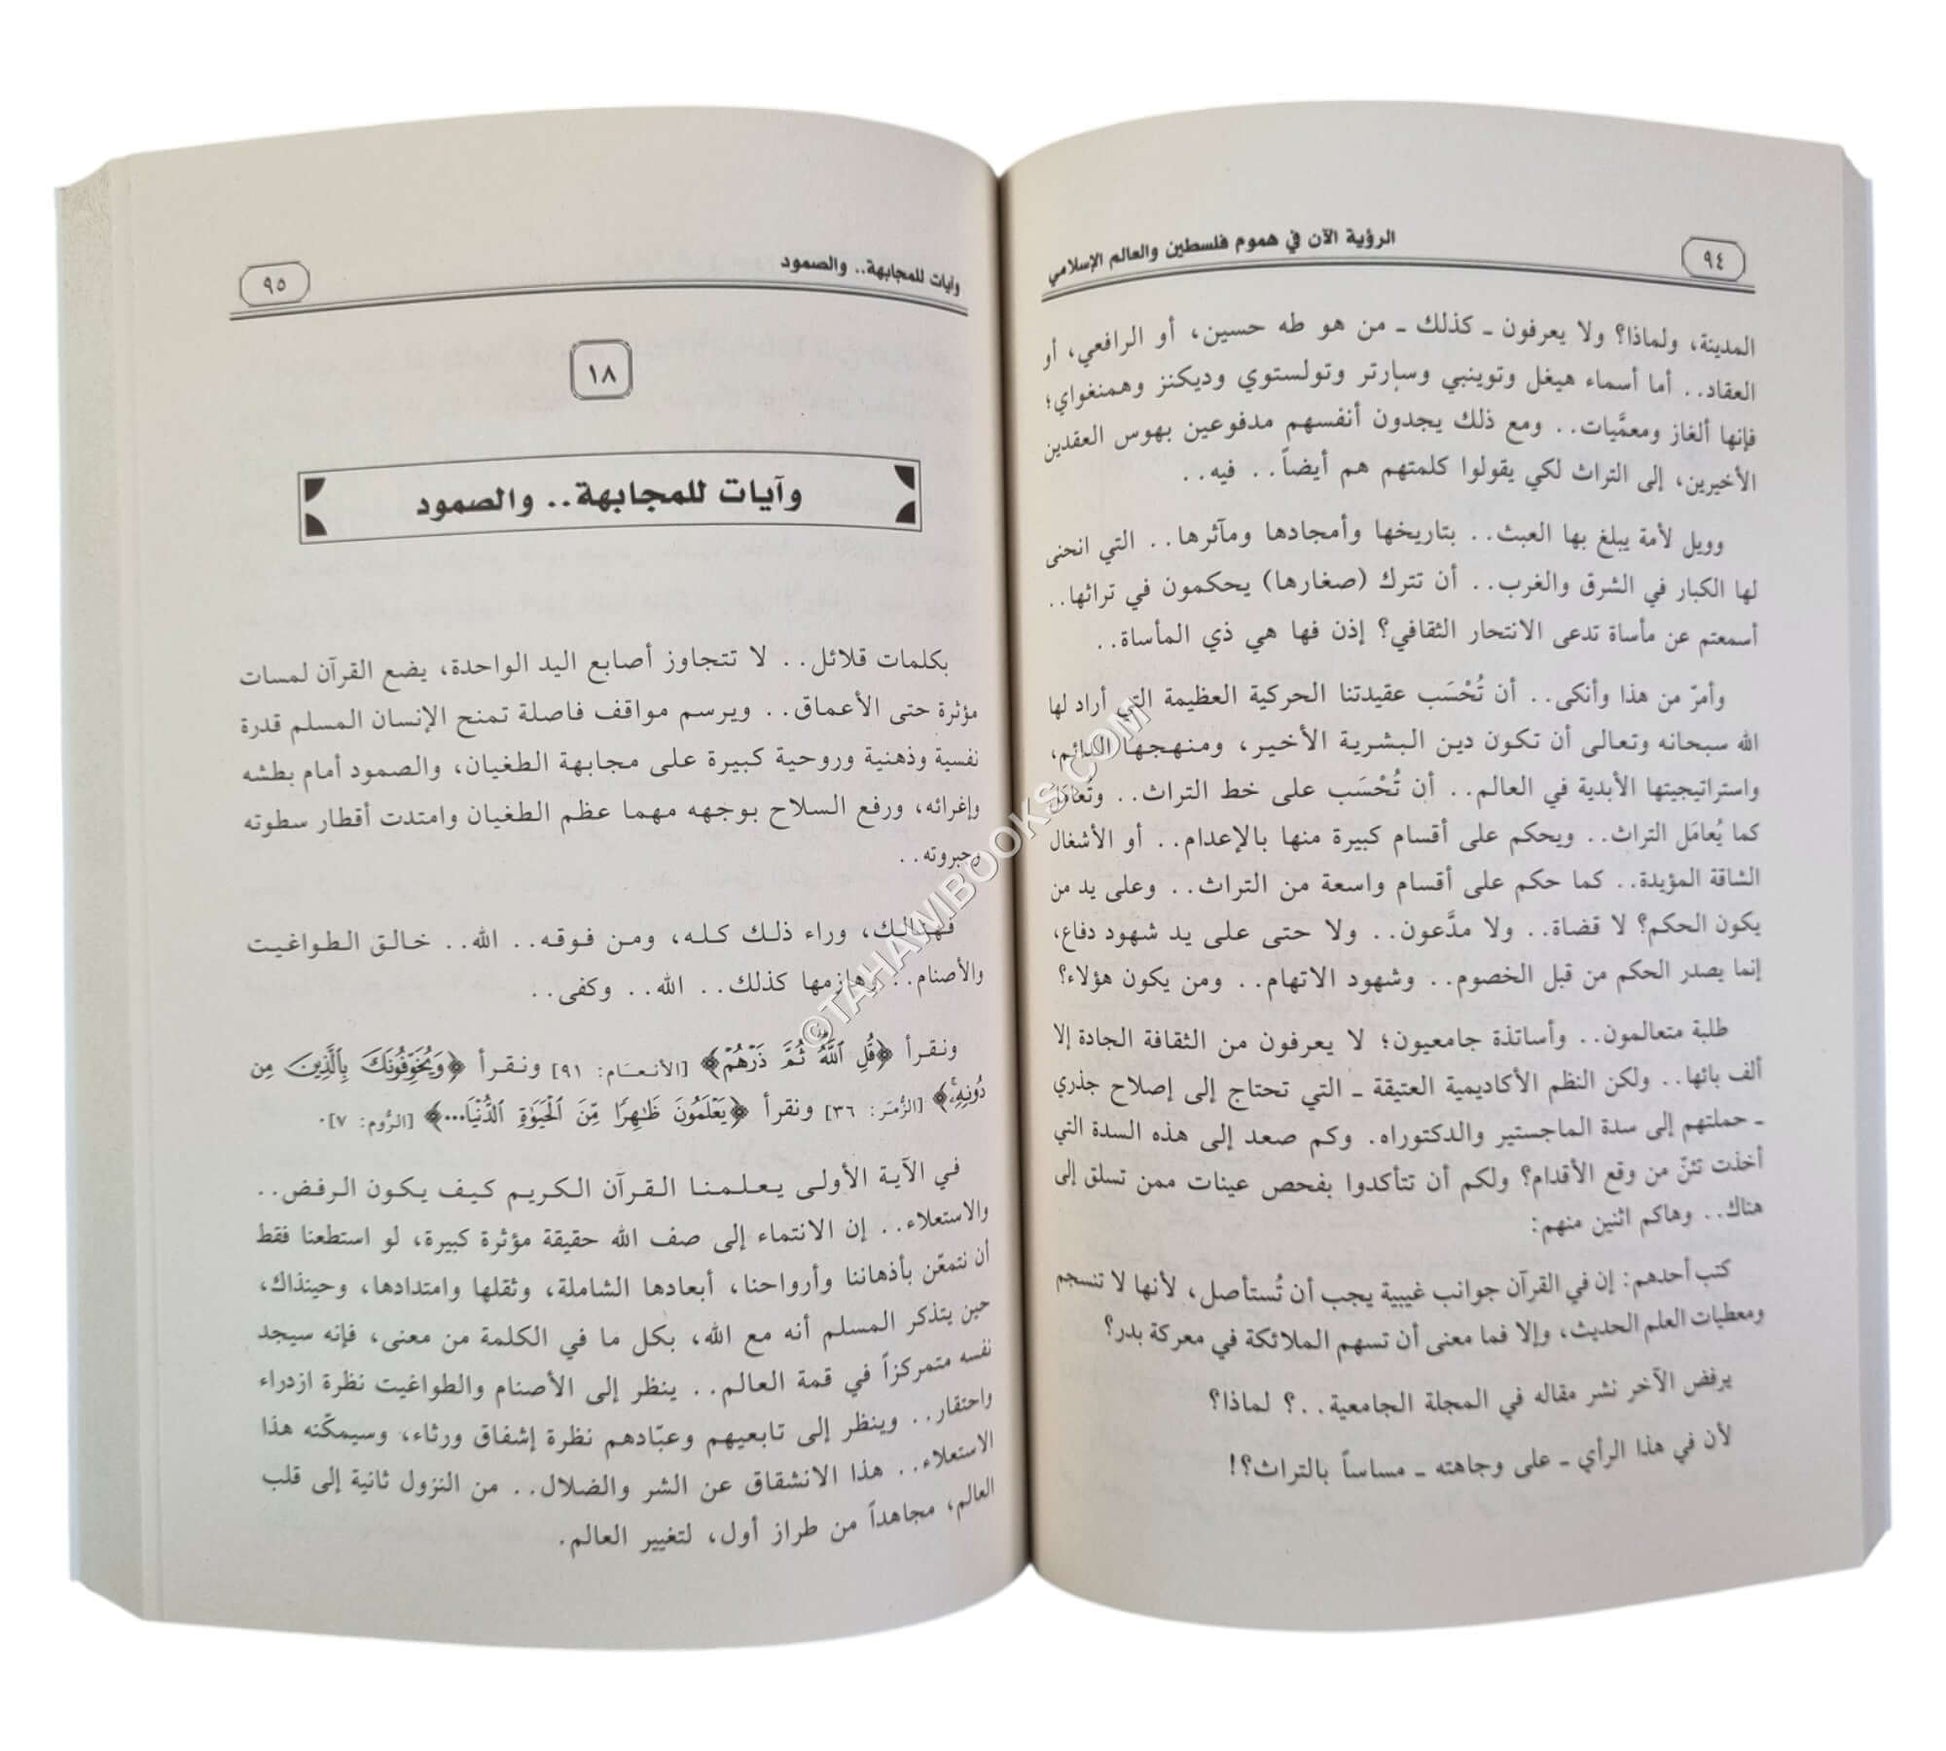 ٩٤
الرؤية الآن في هموم فلسطين والعالم الإسلامي
المدينة، ولماذا؟ ولا يعرفون ـ كذلك ـ من هو طه حسين، أو الرافعي، أو
العقاد.. أما أسماء هيغل وتوينبي وسارتر وتولستوي وديكنز وهمنغواي؛
فإنها ألغاز ومعمَّيات.. ومع ذلك يجدون أنفسهم مدفوعين بهوس العقدين
الأخيرين، إلى التراث لكي يقولوا كلمتهم هم أيضاً.. فيه..
وويل لأمة يبلغ بها العبث.. بتاريخها وأمجادها ومآثرها.. التي انحنى
لها الكبار في الشرق والغرب.. أن تترك (صغارها) يحكمون في تراثها..
أسمعتم عن مأساة تدعى الانتحار الثقافي؟ إذن فها هي ذي المأساة..
وأمرّ من هذا وأنكى.. أن تُحْسَب عقيدتنا الحركية العظيمة التي أراد لها
الله سبحانه وتعالى أن تكون دين البشرية الأخير، ومنهجها الدائم،
واستراتيجيتها الأبدية في العالم.. أن تُحْسَب على خط التراث.. وتُعامَل
كما يُعامَل التراث.. ويحكم على أقسام كبيرة منها بالإعدام.. أو الأشغال
الشاقة المؤبدة.. كما حكم على أقسام واسعة من التراث.. وعلى يد من
يكون الحكم؟ لا قضاة.. ولا مدَّعون.. ولا حتى على يد شهود دفاع،
إنما يصدر الحكم من قبل الخصوم.. وشهود الاتهام.. ومن يكون هؤلاء؟
طلبة متعالمون.. وأساتذة جامعيون؛ لا يعرفون من الثقافة الجادة إلا
ألف بائها.. ولكن النظم الأكاديمية العتيقة ـ التي تحتاج إلى إصلاح جذري
ـ حملتهم إلى سدة الماجستير والدكتوراه. وكم صعد إلى هذه السدة التي
أخذت تئنّ من وقع الأقدام؟ ولكم أن تتأكدوا بفحص عينات ممن تسلق إلى
هناك.. وهاكم اثنين منهم:
كتب أحدهم: إن في القرآن جوانب غيبية يجب أن تُستأصل، لأنها لا تنسجم
ومعطيات العلم الحديث، وإلا فما معنى أن تسهم الملائكة في معركة بدر؟
يرفض الآخر نشر مقاله في المجلة الجامعية..؟ لماذا؟
لأن في هذا الرأي ـ على وجاهته ـ مساساً بالتراث؟!
وآيات للمجابهة.. والصمود
٩٥
١٨
وآيات للمجابهة.. والصمود
بكلمات قلائل.. لا تتجاوز أصابع اليد الواحدة، يضع القرآن لمسات
مؤثرة حتى الأعماق.. ويرسم مواقف فاصلة تمنح الإنسان المسلم قدرة
نفسية وذهنية وروحية كبيرة على مجابهة الطغيان، والصمود أمام بطشه
وإغرائه، ورفع السلاح بوجهه مهما عظم الطغيان وامتدت أقطار سطوته
وجبروته..
فهنالك، وراء ذلك كله، ومن فوقه.. الله.. خالق الطواغيت
والأصنام.. وهازمها كذلك.. الله.. وكفى..
ونقرأ ﴿قُلِ ٱللَّهُ ثُمَّ ذَرْهُمْ﴾ [الأنعام: ٩١] ونقرأ ﴿وَيُخَوِّفُونَكَ بِٱلَّذِينَ مِن
دُونِهِۦ﴾ [الزُّمَر: ٣٦] ونقرأ ﴿يَعْلَمُونَ ظَٰهِرًا مِّنَ ٱلْحَيَوٰةِ ٱلدُّنْيَا...﴾ [الرُّوم: ٧].
في الآية الأولى يعلمنا القرآن الكريم كيف يكون الرفض..
والاستعلاء.. إن الانتماء إلى صف الله حقيقة مؤثرة كبيرة، لو استطعنا فقط
أن نتمعّن بأذهاننا وأرواحنا، أبعادها الشاملة، وثقلها وامتدادها، وحينذاك،
حين يتذكر المسلم أنه مع الله، بكل ما في الكلمة من معنى، فإنه سيجد
نفسه متمركزاً في قمة العالم.. ينظر إلى الأصنام والطواغيت نظرة ازدراء
واحتقار.. وينظر إلى تابعيهم وعبّادهم نظرة إشفاق ورثاء، وسيمكّنه هذا
الاستعلاء.. هذا الانشقاق عن الشر والضلال.. من النزول ثانية إلى قلب
العالم، مجاهداً من طراز أول، لتغيير العالم.
©TAHAMIBOOKS.COM